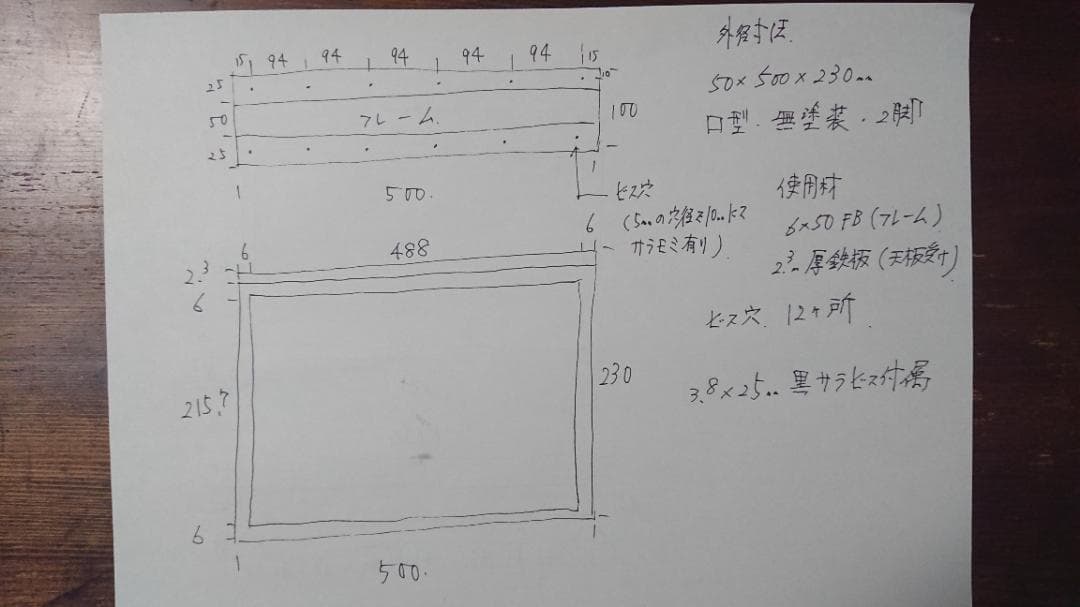 15 94 94 94 94 94 15
25
10
50 フレーム 100
25
500.
ビス穴
(5mmの穴径を10mmにて
サラモミ有り)
6 488 6
2.3
6
215.7 230
6
500.
外径寸法.
50×500×230mm
ロ型・無塗装・2脚
使用材
6×50 FB (フレーム)
2.3mm厚鉄板(天板受け)
ビス穴. 12ヶ所.
3.8×25mm 黒サラビス付属